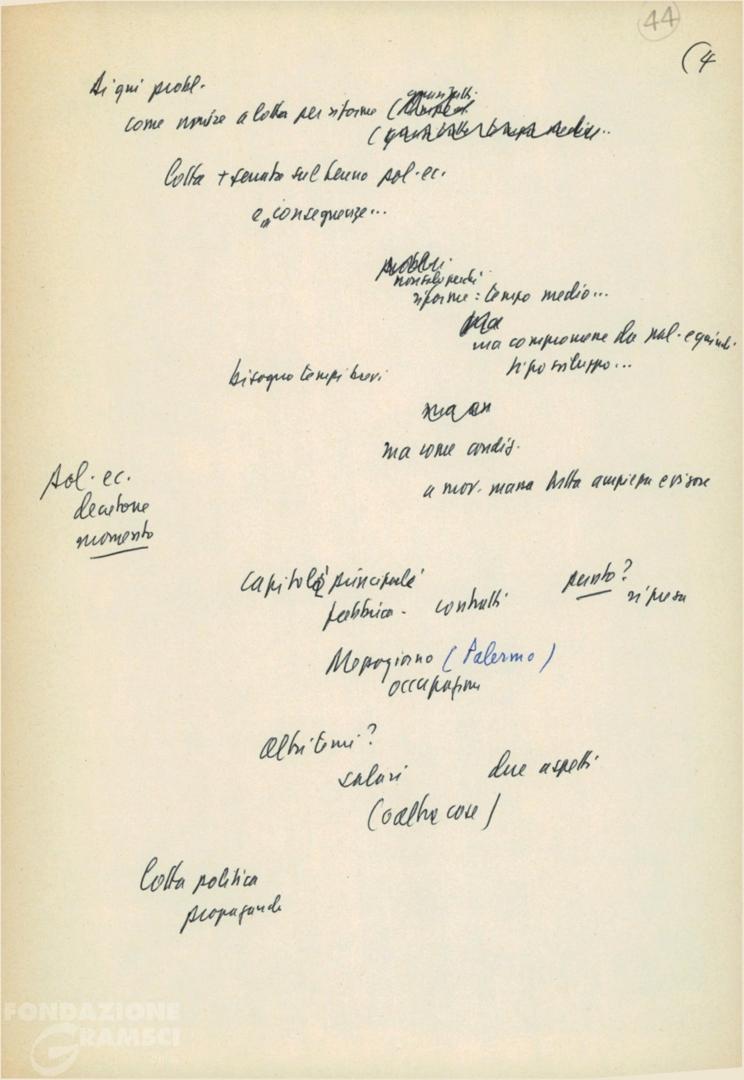 44
(4
Di qui probl.
come unire a lotta per riforme (
Lotta + serrata sul terreno pol. ec.
e conseguenze...
riforme: tempo medio...
ma
ma compromene da pol. e quindi
tipo sviluppo...
bisogno tempi brevi
ma
ma come condiz.
a mov. massa lotta ampiezza e vigore
Pol. ec.
decisione
momento
capitolo principale
punto?
fabbrica - contratti
ripresa
Mezzogiorno (Palermo)
occupazione
Altri temi?
salari
due aspetti
(o altre cose)
Lotta politica
propaganda
FONDAZIONE
GRAMSCI